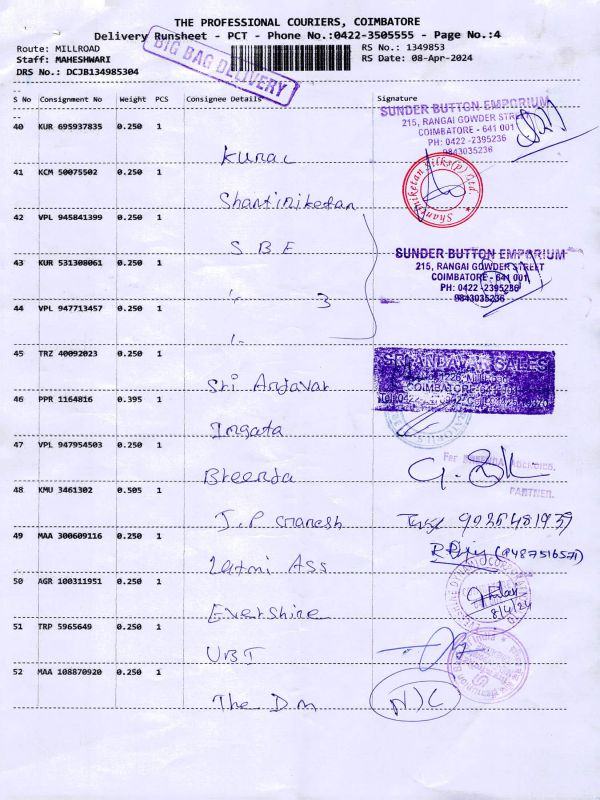 THE PROFESSIONAL COURIERS, COIMBATORE
Delivery Runsheet - PCT - Phone No.:0422-3505555 - Page No.:4
Route: MILLROAD
RS No.: 1349853
Staff: MAHESHWARI
RS Date: 08-Apr-2024
DRS No.: DCJB134985304
BIG BAG DELIVERY
S No Consignment No Weight PCS Consignee Details Signature
SUNDER BUTTON EMPORIUM
215, RANGAI GOWDER STREET
COIMBATORE - 641 001
PH: 0422 -2395236
9843035236
40 KUR 695937835 0.250 1
Kunal
41 KCM 50075502 0.250 1
Shantiniketan
Shantiniketan Silks(p) Ltd.
42 VPL 945841399 0.250 1
S B E
43 KUR 531308061 0.250 1
3
SUNDER BUTTON EMPORIUM
215, RANGAI GOWDER STREET
COIMBATORE - 641 001
PH: 0422 -2395236
9843035236
44 VPL 947713457 0.250 1
45 TRZ 40092023 0.250 1
Sri Andavar
SRI ANDAVAR SALES
COIMBATORE
46 PPR 1164816 0.395 1
47 VPL 947954503 0.250 1
For AGENCIES.
PARTNER.
48 KMU 3461302 0.505 1
J.P Ganesh
49 MAA 300609116 0.250 1
Laxmi Ass
(9487516571)
50 AGR 100311951 0.250 1
Evershine
8/4/24
51 TRP 5965649 0.250 1
UBI
52 MAA 108870920 0.250 1
The Dm